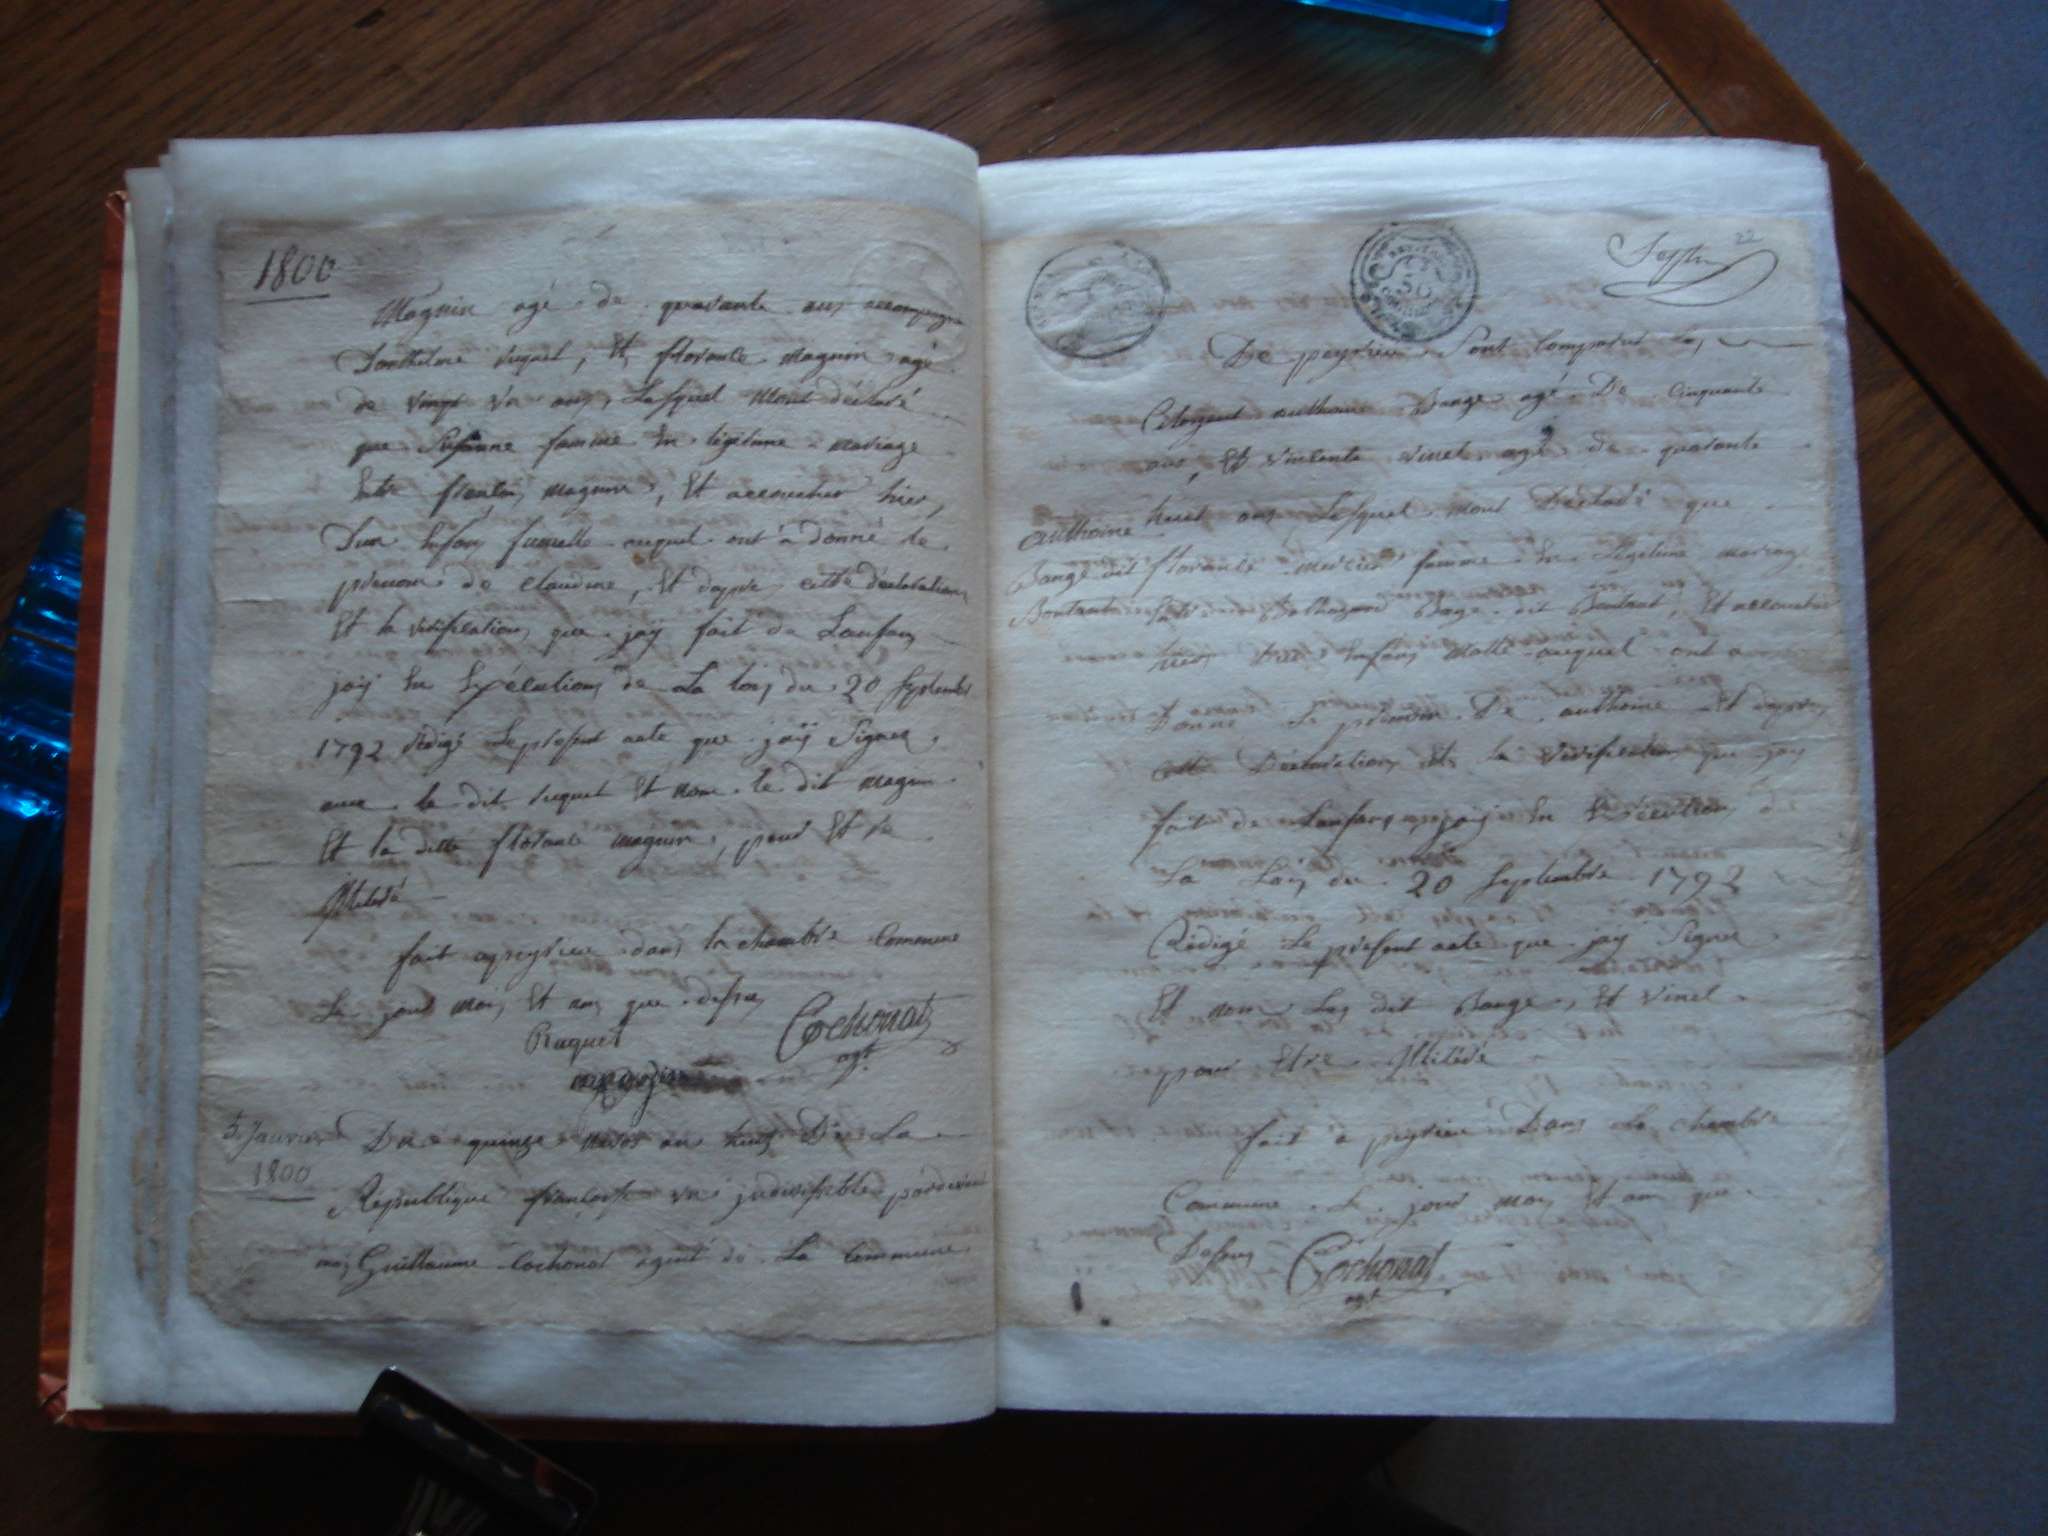 1800
Magnin agé de quarante ans accompagné
Danthelme ruquet, Et florance magnin agé
de vingt un ans, Lesquel mont déclaré
que Susanne famme En légitime mariage
Entre magnin, Et accoucher hier,
Dun Enfan fumelle auquel ont a donné le
prenom de claudine, Et dappre cette déclaration
Et la vérification que jaÿ fait de Lanfan
jaÿ En Exécution de La loy du 20 Septembre
1792 Rédigé Le présent acte que jaÿ Signer
avec le dit ruquet Et non le dit magnin
Et la ditte florance magnin, pour Et re
fait apeyrieu dans la chambre Commune
Le jour mois Et an que desus
Ruquet
Cochonat
agt
5 Janvier
1800
Du quinze nivos an huit De La
République françoise une indivisible pardevant
moy Guillaume Cochonat agent de La Commune
22
De peyrieu Sont Comparut Les
Citoyent anthoine Bange agé De Cinquante
ans, Et vincente vinet agé de quarante
huit ans Lesquel mont Déclaré que
anthoine
Bange dit
Boutant
florance famme En Légitime mariage
Bage dit Boutant, Et accoucher
hier Dun Enfan malle auquel ont a
Donné Le prenom De anthoine Et dappre
cette Déclaration Et la vérification que jay
fait de Lanfan, jaÿ En Exécution d
La Loy du 20 Septembre 1792
Rédigé Le présent acte que jaÿ Signer
Et non Les dit Bange, Et vinet
pour Etre
fait a peyrieu Dans La chambre
Commune Le jour mois Et an que
Desus
Cochonat
agt